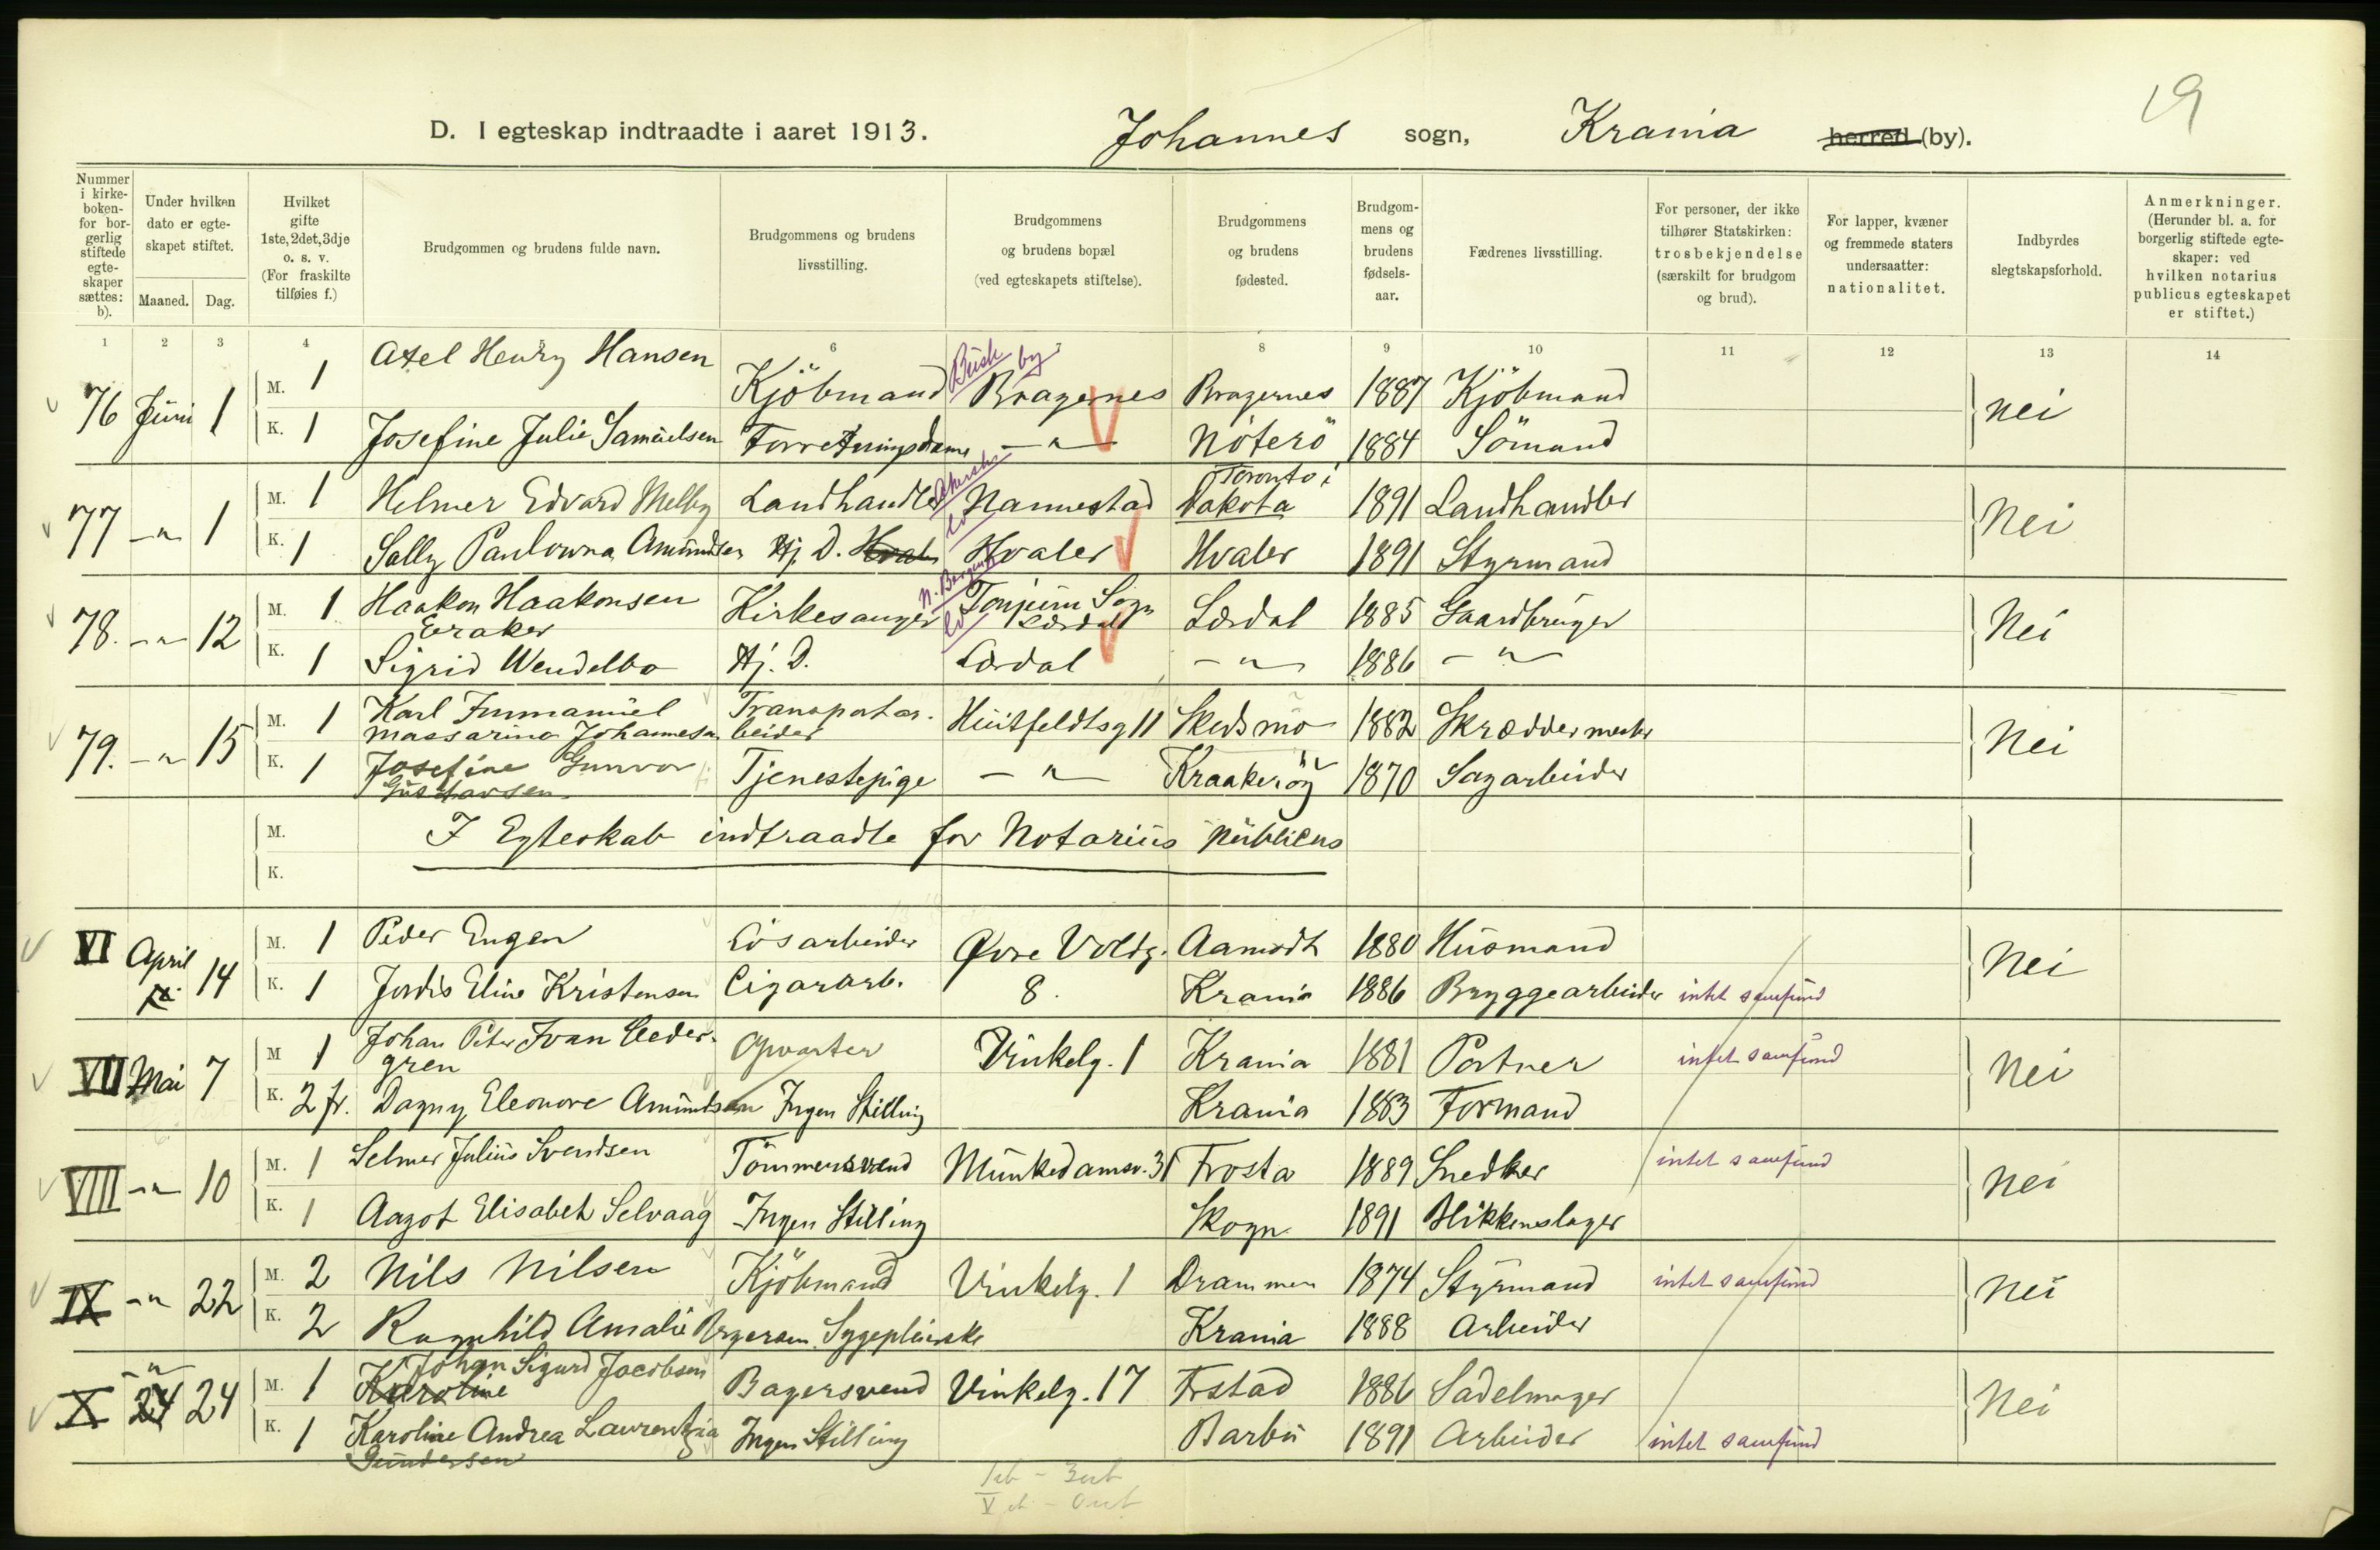 19
D. I egteskap indtraadte i aaret 1913. Johannes sogn, Krania herred (by).
Nummer i kirkeboken for borgerlig stiftede egteskaper sættes: b).
Under hvilken dato er egteskapet stiftet.
Maaned. Dag.
Hvilket gifte 1ste, 2det, 3dje o. s. v. (For fraskilte tilføies f.)
Brudgommen og brudens fulde navn.
Brudgommens og brudens livsstilling.
Brudgommens og brudens bopæl (ved egteskapets stiftelse).
Brudgommens og brudens fødested.
Brudgommens og brudens fødselsaar.
Fædrenes livsstilling.
For personer, der ikke tilhører Statskirken: trosbekjendelse (særskilt for brudgom og brud).
For lapper, kvæner og fremmede staters undersaatter: nationalitet.
Indbyrdes slegtskapsforhold.
Anmerkninger. (Herunder bl. a. for borgerlig stiftede egteskaper: ved hvilken notarius publicus egteskapet er stiftet.)
1 2 3 4 6 7 8 9 10 11 12 13 14
Busk by
76 Juni 1 M. 1 Axel Henry Hansen Kjöbmand Bragernes Bragernes 1887 Kjöbmand nei
K. 1 Josefine Julie Samuelsen Forretningsdame — " — Nöterö 1884 Sömand
77 — " — 1 M. 1 Helmer Edvard Melby Landhandler Akersh. Nannestad Toronto i Dakota 1891 Landhandler Nei
K. 1 Sally Paulowna Amundsen Hj. D. Hvaler Hvaler 1891 Styrmand
78. — " — 12 M. 1 Haakon Haakonsen Eraker Kirkesanger N. Bergenh. Ld Tonjum Sogn Lærdal Lærdal 1885 Gaardbruger Nei
K. 1 Sigrid Wendelbo Hj. D. Lærdal — " — 1886 — " —
79. — " — 15 M. 1 Karl Immanuel Massarino Johannesen Transportarbeider Huitfeldtsg 11 Skedsmo 1882 Skræddermester Nei
K. 1 Josefine Gunvor Gustavsen Tjenestepige — " — Kraakeröy 1870 Sagarbeider
M.
K.
I Egteskab indtraadte for Notarius publicus
VI April 14 M. 1 Peder Engen Lösarbeider Øvre Voldg. 8. Aamodt 1880 Husmand Nei
K. 1 Jordis Eline Kristensen Cigararb. Krania 1886 Bryggearbeider intet samfund
VII Mai 7 M 1 Johan Peter Ivan Cedergren Opvarter Vinkelg. 1 Krania 1881 Portner intet samfund Nei
K. 2 fr. Dagny Eleonore Amundsen Ingen Stilling Krania 1883 Formand
VIII — " — 10 M. 1 Selmer Julius Svendsen Tömmersvend Munkedamsv. 31 Frosta 1889 Snedker intet samfund Nei
K. 1 Aagot Elisabeth Selvaag Ingen Stilling Skogn 1891 Blikkenslager
IX — " — 22 M. 2 Nils Nilsen Kjöbmand Vinkelg. 1 Drammen 1874 Styrmand intet samfund Nei
K. 2 Ragnhild Amalie Sygepleierske Krania 1888 Arbeider
X — " — 24 24 M. 1 Johan Sigurd Jacobsen Karoline Bagersvend Vinkelg. 17 Frstad 1886 Sadelmager Nei
K. 1 Karoline Andrea Laurentzia Gundersen Ingen Stilling Barbu 1891 Arbeider intet samfund